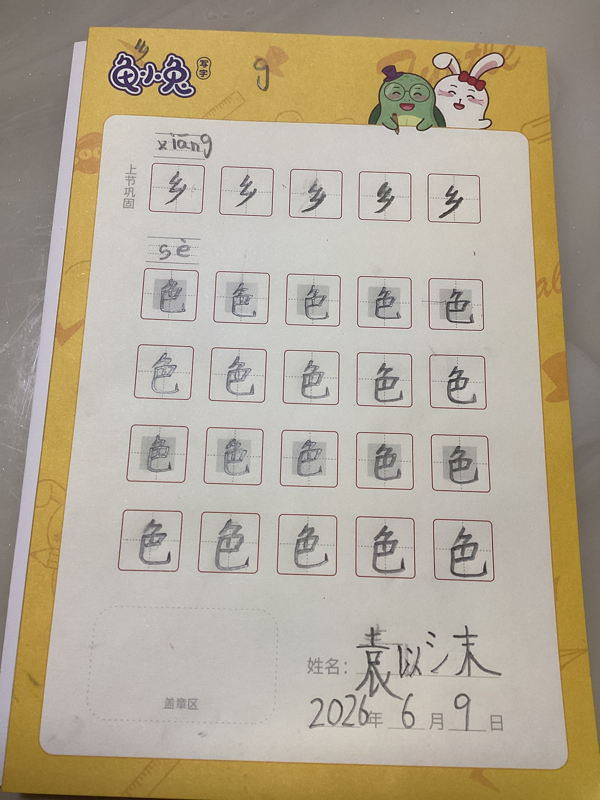 龟小兔 写字 g
Turtle
xiāng
上节巩固
乡 乡 乡 乡 乡
sè
色 色 色 色 色
色 色 色 色 色
色 色 色 色 色
色 色 色 色 色
姓名：袁以沫
盖章区
2026年 6 月 9 日